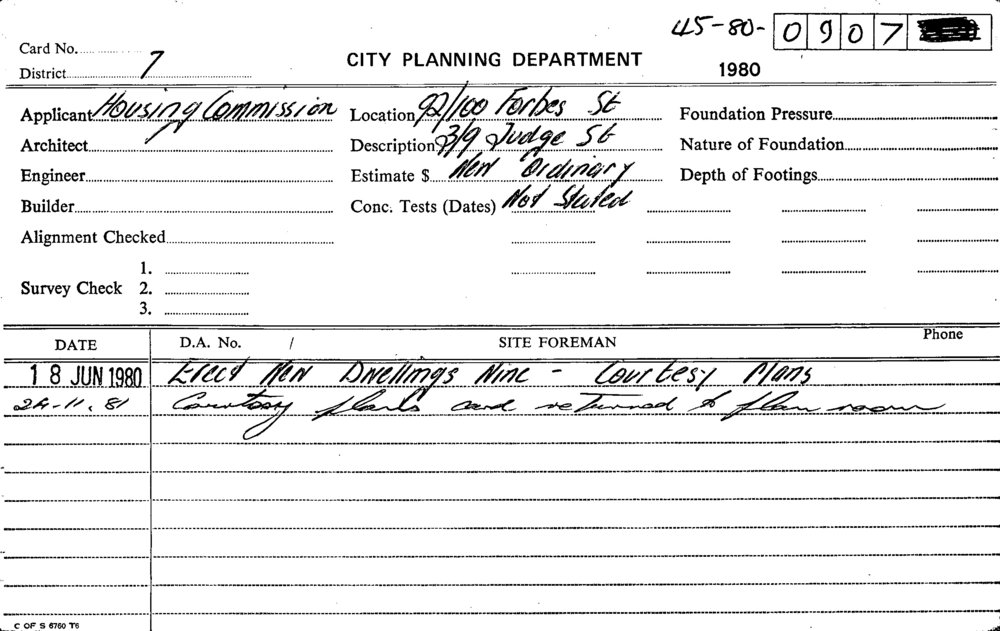 45-80-0907
Card No. CITY PLANNING DEPARTMENT
District 7 1980
Applicant Housing Commission Location 92/100 Forbes St Foundation Pressure
Architect Description 3/9 Judge St Nature of Foundation
Engineer Estimate $ New Ordinary Depth of Footings
Builder Conc. Tests (Dates) Not Stated
Alignment Checked
1.
Survey Check 2.
3.
DATE D.A. No. / SITE FOREMAN Phone
18 JUN 1980 Erect New Dwellings Nine - Courtesy Plans
24-11.81 Courtesy plans card returned to plan room
C OF S 6760 T6